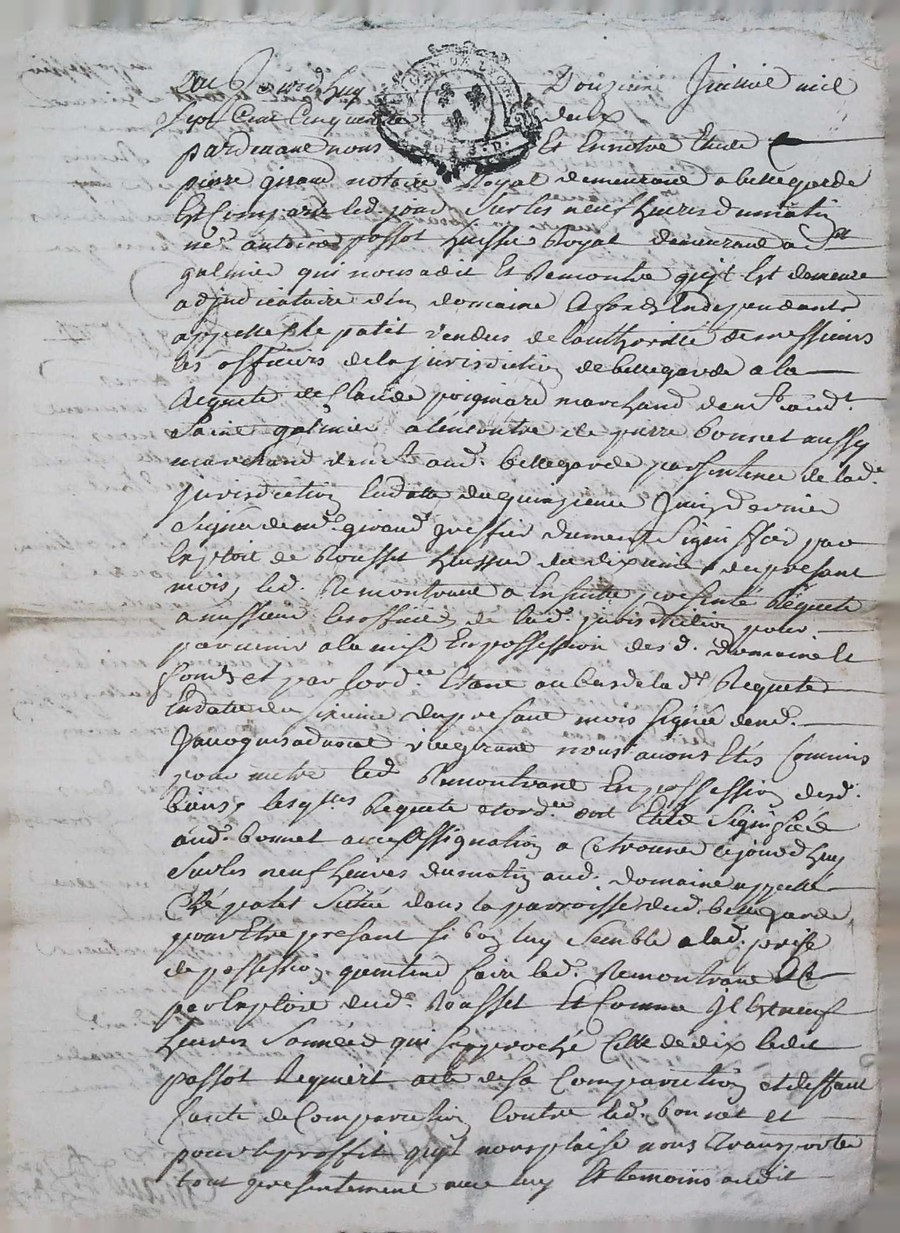 Aujourd'huy Douzieme Juillet mil
Sept Cent Cinquante deux
pardevant nous Et En notre Etude
pierre giraud notaire Royal demeurant a bellegarde
Est Comparu led. jour Sur les neuf heures du matin
me. antoine passot huissier Royal demeurant a St
galmier qui nous a dit Et Remontré qu'jl Est demeuré
adjudicataire d'un domaine & fonds Independants
appellé le patit vendus de l'authorité de messieurs
les officiers de la jurisdiction de bellegarde a la
Requete de Claude poignard marchand demt. aud.
Saint galmier a l'encontre de pierre bonnet aussy
marchand demt. aud. bellegarde par Sentence de lad.
jurisdiction En datte du quinzieme Juin dernier
Signée de me. giraud greffier duement Signiffiée par
Exploit de Rousset huissier du dixieme du présant
mois, led. Remontrant a Ensuitte presenté Requete
a messieurs les officiers de lad. jurisdiction pour
parvenir a la mise En possession desd. domaine Et
fonds et par l'ordce. Etant au bas de lad. Requete
En datte du du présant mois Signée de me.
nous avons Etés Commis
pour mettre led. Remontrant En possession desd.
biens, lesqles Requete et ordce. ont Eté Signiffiée
aud. bonnet avec assignation a Ce trouver cejourd'huy
Sur les neuf heures du matin aud. domaine appellé
le patet Scitué dans la parroisse dud. bellegarde
pour Etre présant Si bon luy Semble a lad. prise
de possession qu'entend faire led. Remontrant
par Exploit dud. Rousset Et Comme Jl Est neuf
heures Sonnées qui S'approche Celle de dix ledit
passot Requiert acte de Sa Comparution et deffaut
faute de Comparution Contre led. bonnet et
pour le proffit qu'jl nous plaise nous transporter
tout presentement avec luy Et temoins audit